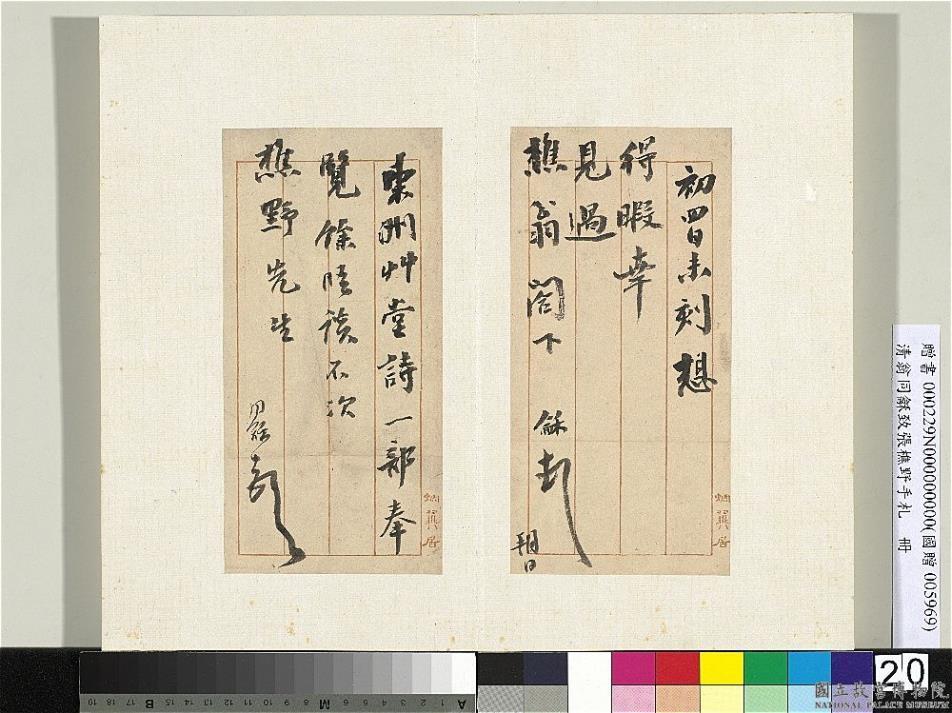 初四日未刻想
得暇幸
見過
樵翁閤下 龢頓
朔日
東洲艸堂詩一部奉
覽餘晤談不次
樵野先生
同龢頓
贈書 000229N000000000(國贈 005969)
清翁同龢致張樵野手札 冊
20
國立故宮博物院
NATIONAL PALACE MUSEUM